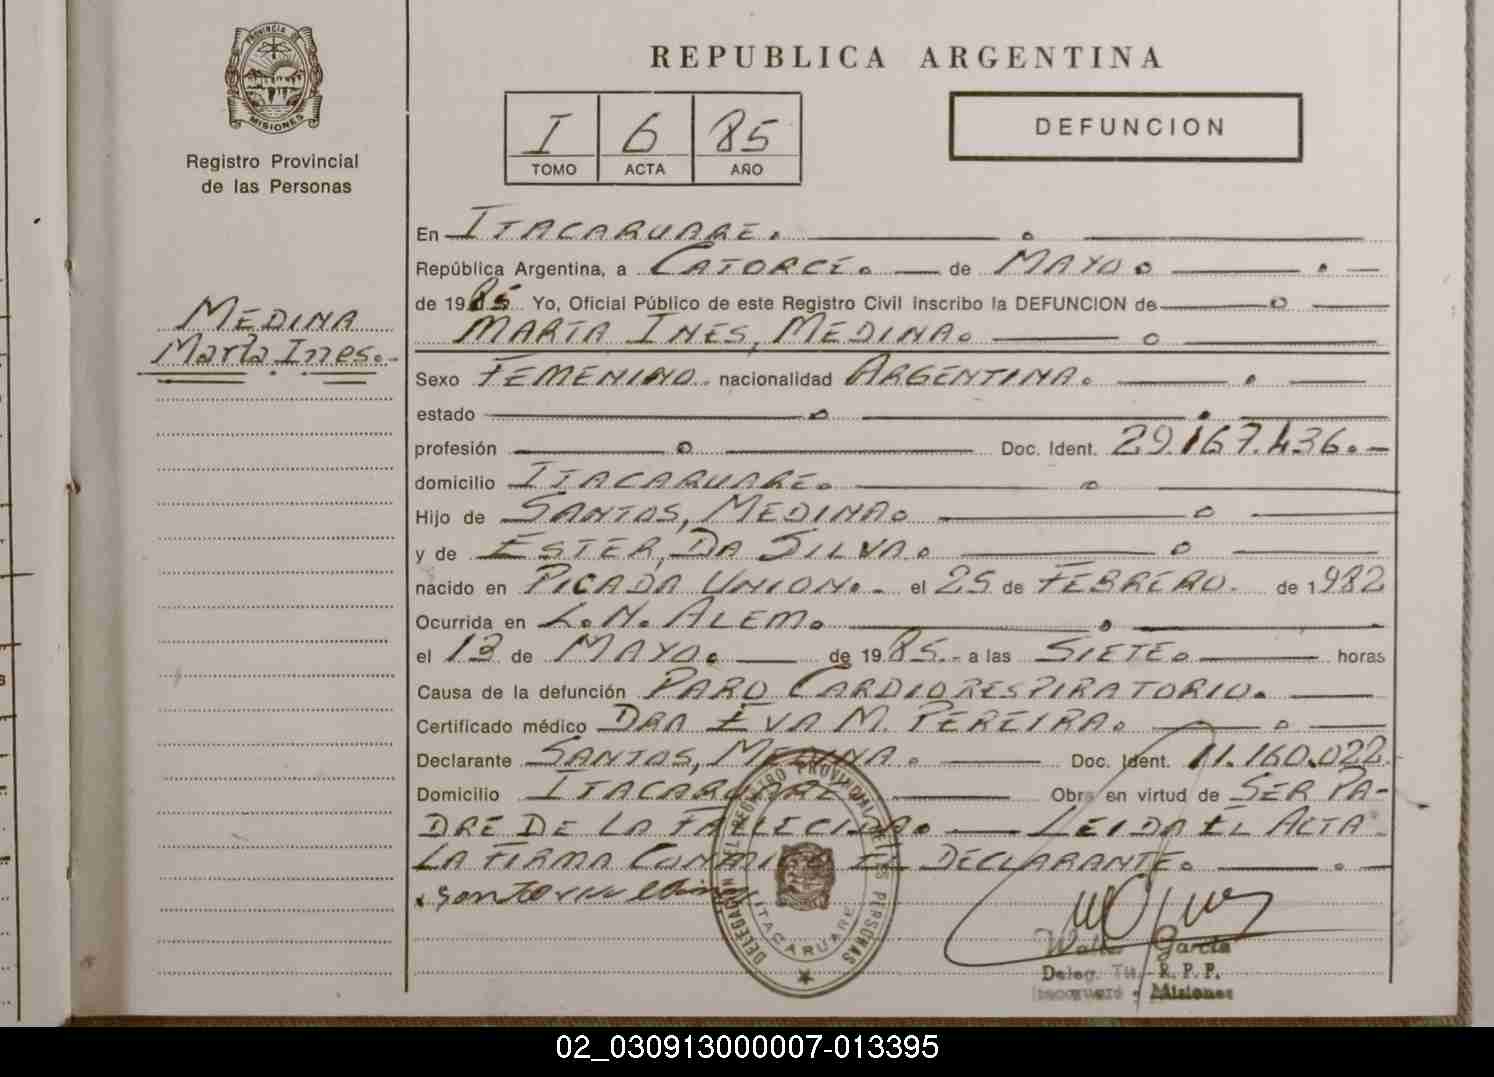 PROVINCIA DE
MISIONES
Registro Provincial
de las Personas
MEDINA
María Ines.-
REPUBLICA ARGENTINA
I 6 85
TOMO ACTA AÑO
DEFUNCION
En ITACARUARE.
República Argentina, a CATORCE. de MAYO.
de 1985 Yo, Oficial Público de este Registro Civil inscribo la DEFUNCION de
MARIA INES, MEDINA.
Sexo FEMENINO. nacionalidad ARGENTINA.
estado
profesión Doc. Ident. 29.167.436.-
domicilio ITACARUARE.
Hijo de SANTOS, MEDINA.
y de ESTER, DA SILVA.
nacido en PICADA UNION.- el 25 de FEBRERO. de 1982
Ocurrida en L.N. ALEM.
el 13 de MAYO. de 1985.- a las SIETE. horas
Causa de la defunción PARO CARDIORESPIRATORIO.
Certificado médico DRA EVA M. PEREIRA.
Declarante SANTOS, MEDINA. Doc. Ident. 11.160.022
Domicilio ITACARUARE. Obra en virtud de SER PA-
DRE DE LA FALLECIDA. LEIDA EL ACTA
LA FIRMA CONMIGO EL DECLARANTE.
DELEGACION DEL REGISTRO PROVINCIAL DE LAS PERSONAS
ITACARUARE
Walter Garcia
Deleg. Tit. - R. P. P.
Itacaruaré - Misiones
02_030913000007-013395